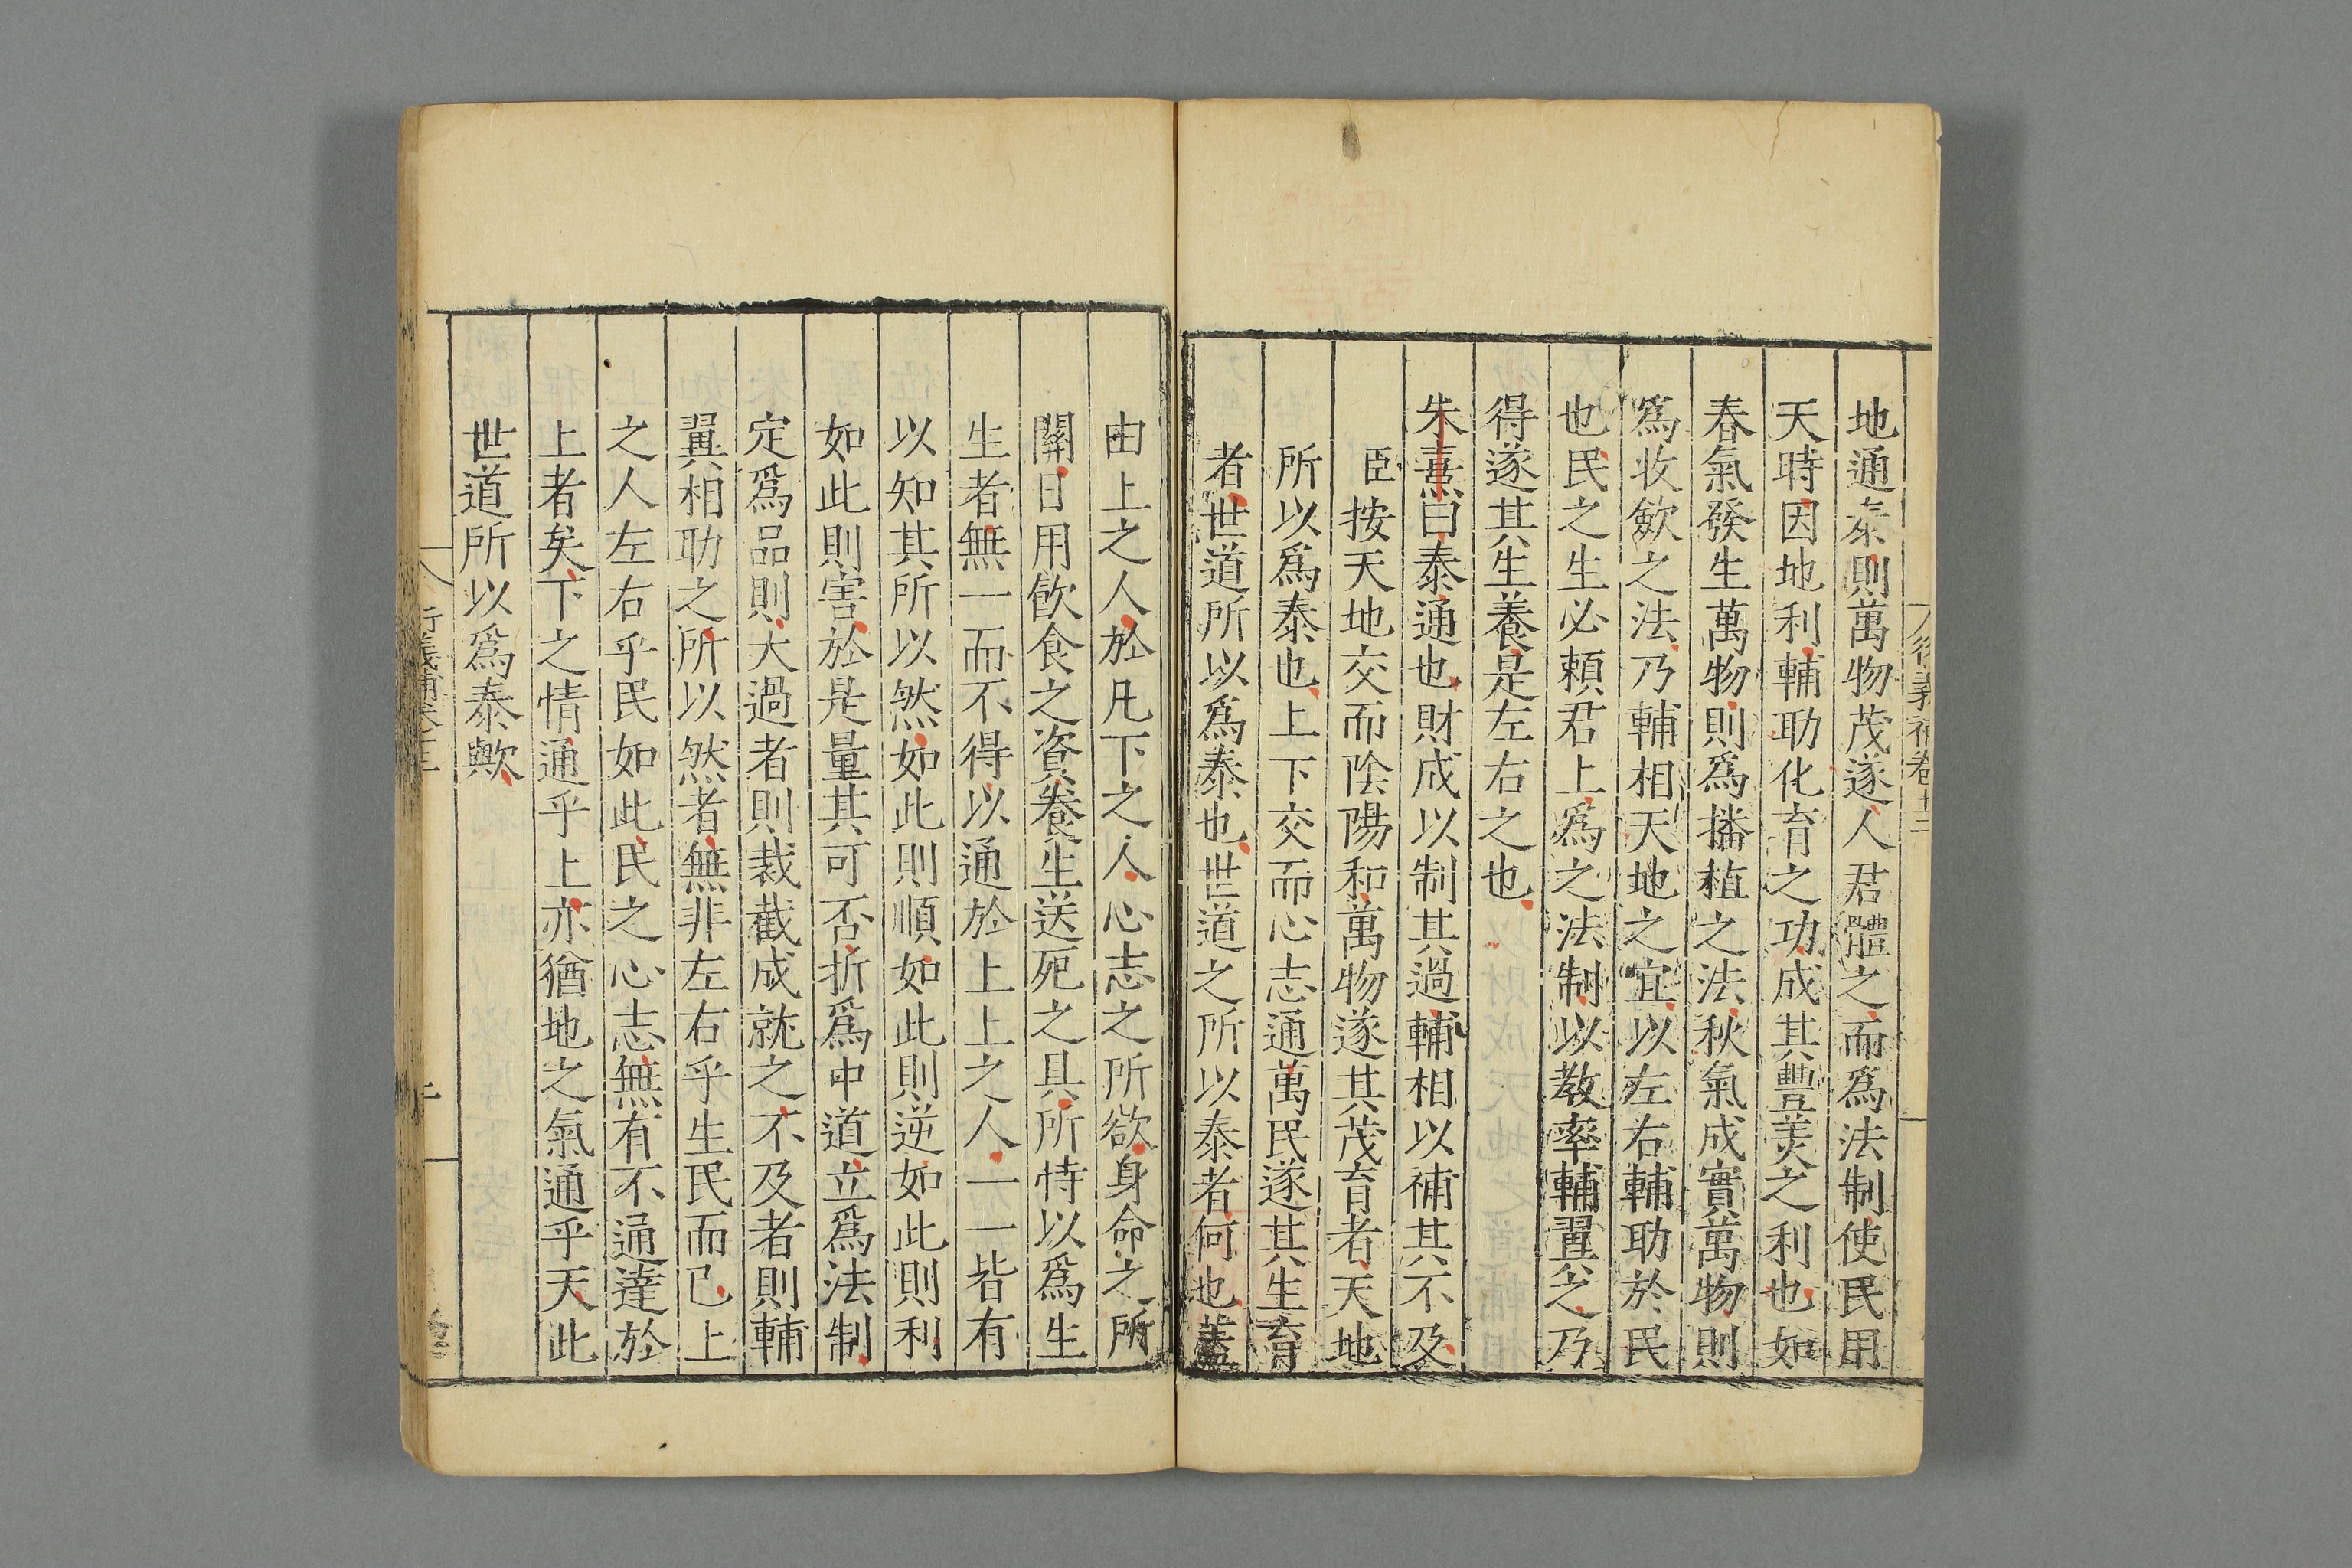 地通泰則萬物茂遂人君體之而爲法制使民用
天時因地利輔助化育之功成其豐美之利也如
春氣發生萬物則爲播植之法秋氣成實萬物則
爲收斂之法乃輔相天地之宜以左右輔助於民
也民之生必賴君上爲之法制以教率輔翼之乃
得遂其生養是左右之也
朱熹曰泰通也財成以制其過輔相以補其不及
臣按天地交而陰陽和萬物遂其茂育者天地
所以爲泰也上下交而心志通萬民遂其生育
者世道所以爲泰也世道之所以泰者何也蓋
由上之人於凡下之人心志之所欲身命之所
關日用飲食之資養生送死之具所恃以爲生
生者無一而不得以通於上上之人一一皆有
以知其所以然如此則順如此則逆如此則利
如此則害於是量其可否折爲中道立爲法制
定爲品則大過者則裁截成就之不及者則輔
翼相助之所以然者無非左右乎生民而已上
之人左右乎民如此民之心志無有不通達於
上者矣下之情通乎上亦猶地之氣通乎天此
世道所以爲泰歟